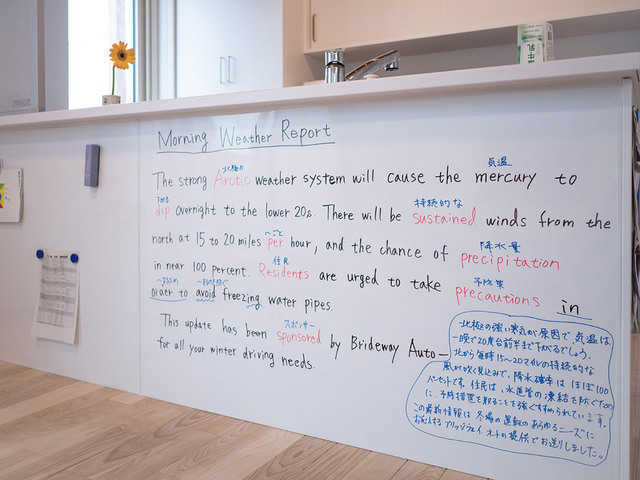 Morning Weather Report
北極の
気温
The strong Arctic weather system will cause the mercury to
下がる
持続的な
dip overnight to the lower 20s. There will be sustained winds from the
〜ごと
降水量
north at 15 to 20 miles per hour, and the chance of precipitation
住民
予防策
in near 100 percent. Residents are urged to take precautions in
order to avoid freezing water pipes.
スポンサー
This update has been sponsored by Brideway Auto-
for all your winter driving needs.
北極の強い寒気が原因で、気温は
一晩で20度台前半まで下がるでしょう。
北から毎時15〜20マイルの持続的な
風が吹く見込みで、降水確率はほぼ100
パーセントです。住民は、水道管の凍結を防ぐため
に、予防措置を取ることを強くすすめられています。
この最新情報は、冬場の運転のあらゆるニーズに
お応えするブリッジウェイ オートの提供でお送りしました。
牛乳